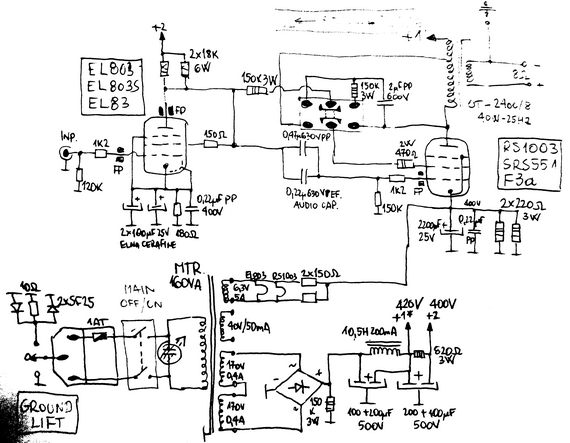 +2
2x18K
6W
EL803
EL803S
EL83
FP
INP.
1K2
FP
120K
150Ω
2x100µF 25V
ELNA CERAFINE
180Ω
0,22µF PP
400V
150K 3W
150K
3W
2µF PP
600V
0,47µ 630V PP
0,22µ 630V PEF.
AUDIO CAP.
2W
470Ω
1K2
FP
150K
+1
8Ω
OT-240C/8
40W-25Hz
RS1003
SRS551
F3a
400V
2200µF
25V
0,22µF
PP
2x220Ω
3W
MTR.
160VA
6,3V
5A
EL803
RS1003
2x150Ω
40V/50mA
170V
0,4A
170V
0,4A
150
K
3W
10,5H 200mA
426V
+1*
400V
+2
620Ω
3W
100+200µF
500V
200+100µF
500V
10Ω
2xSF25
1AT
MAIN
OFF/ON
GROUND
LIFT